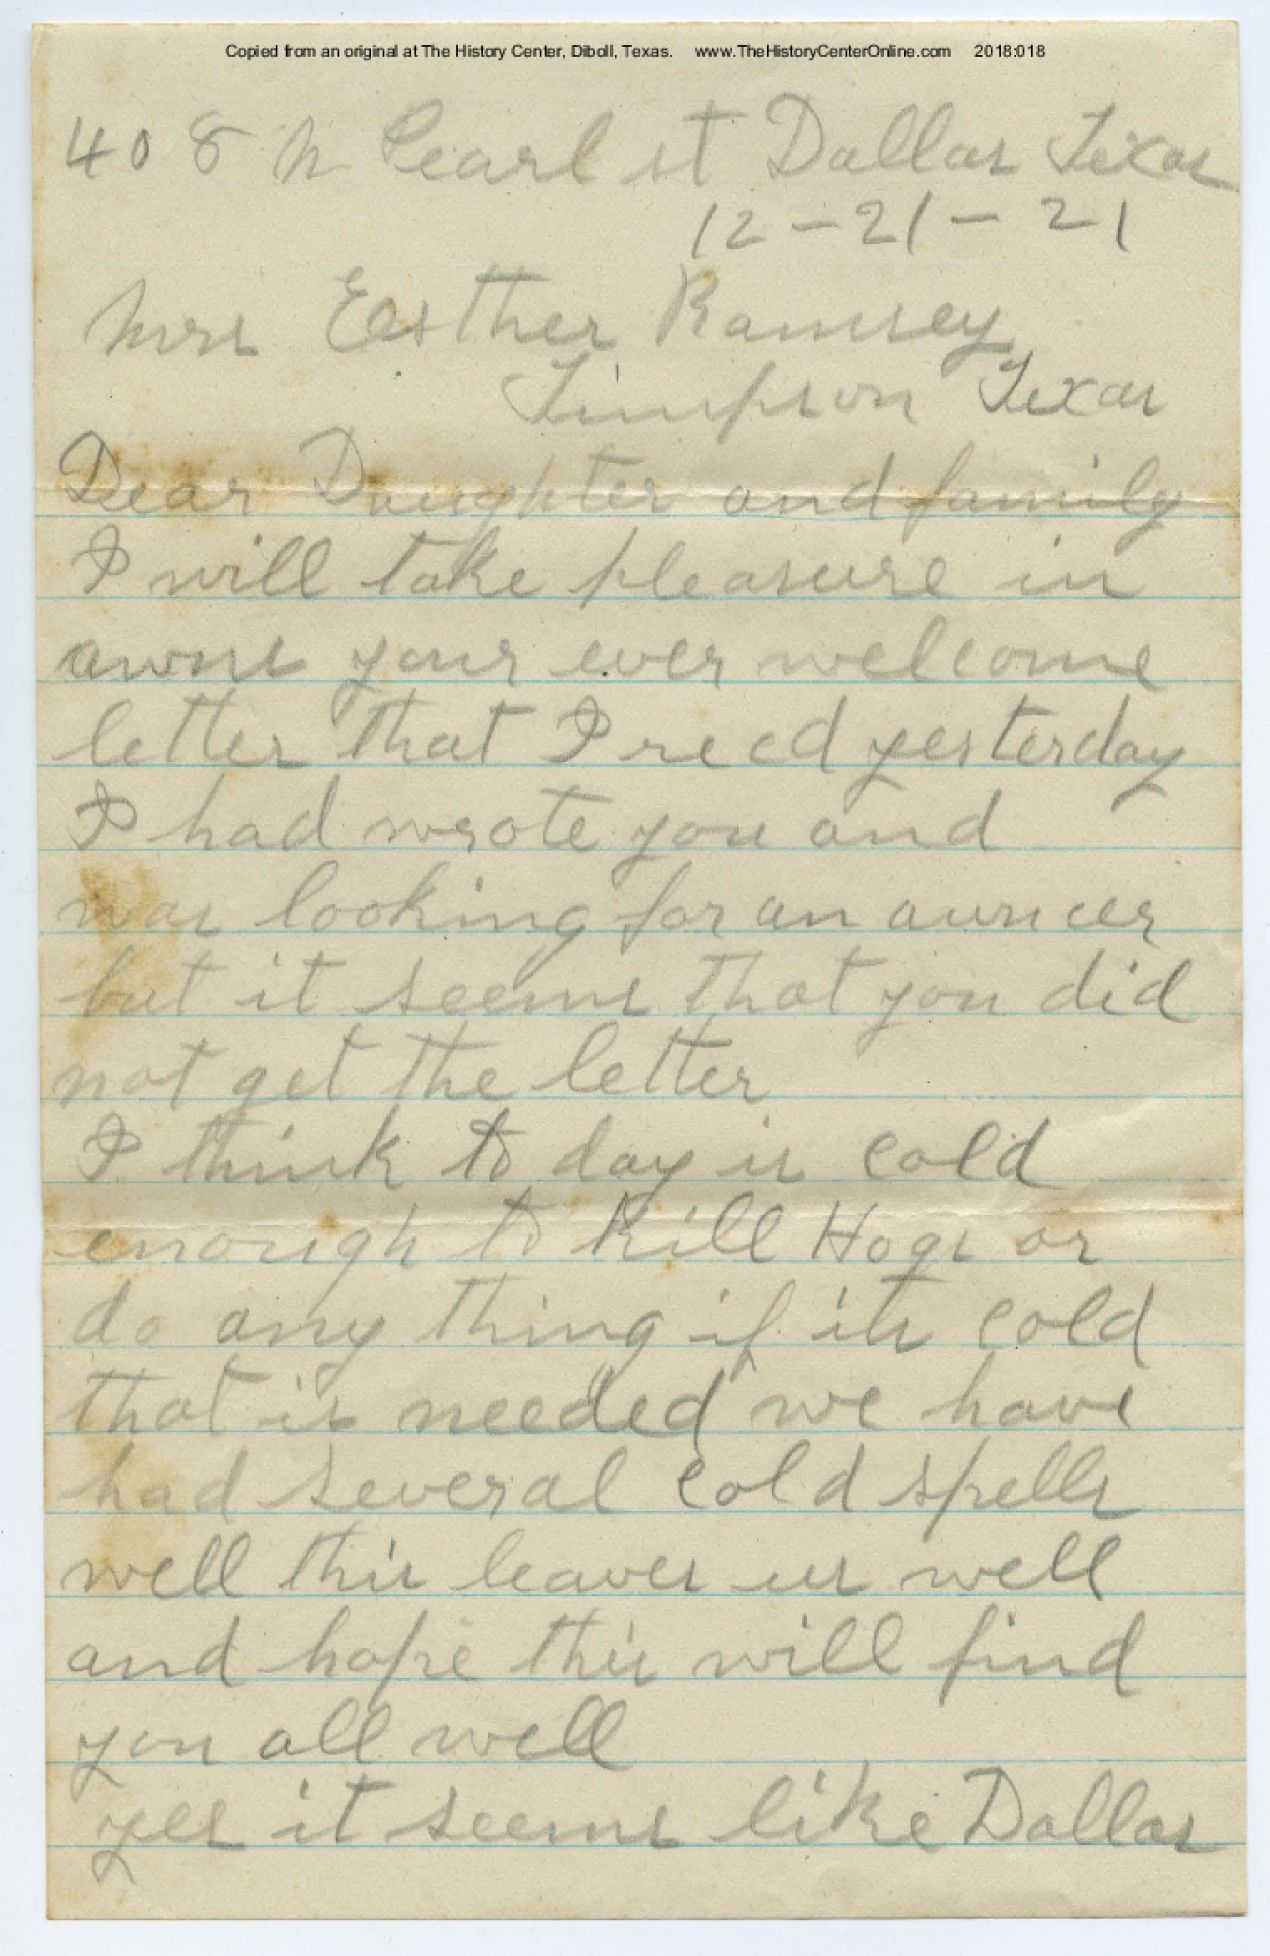 Copied from an original at The History Center, Diboll, Texas. www.TheHistoryCenterOnline.com 2018:018
408 N Pearl st Dallas Texas
12-21-21
Mrs Easther Ramsey
Timpson Texas
Dear Daughter and family
I will take pleasure in
awns your ever welcome
letter that I recd yesterday
I had wrote you and
was looking for an awncer
but it seems that you did
not get the letter
I think to day is cold
enough to Kill Hogs or
do any thing if its cold
that is needed we have
had several cold spells
well this leaves us well
and hope this will find
you all well
yes it seems like Dallas